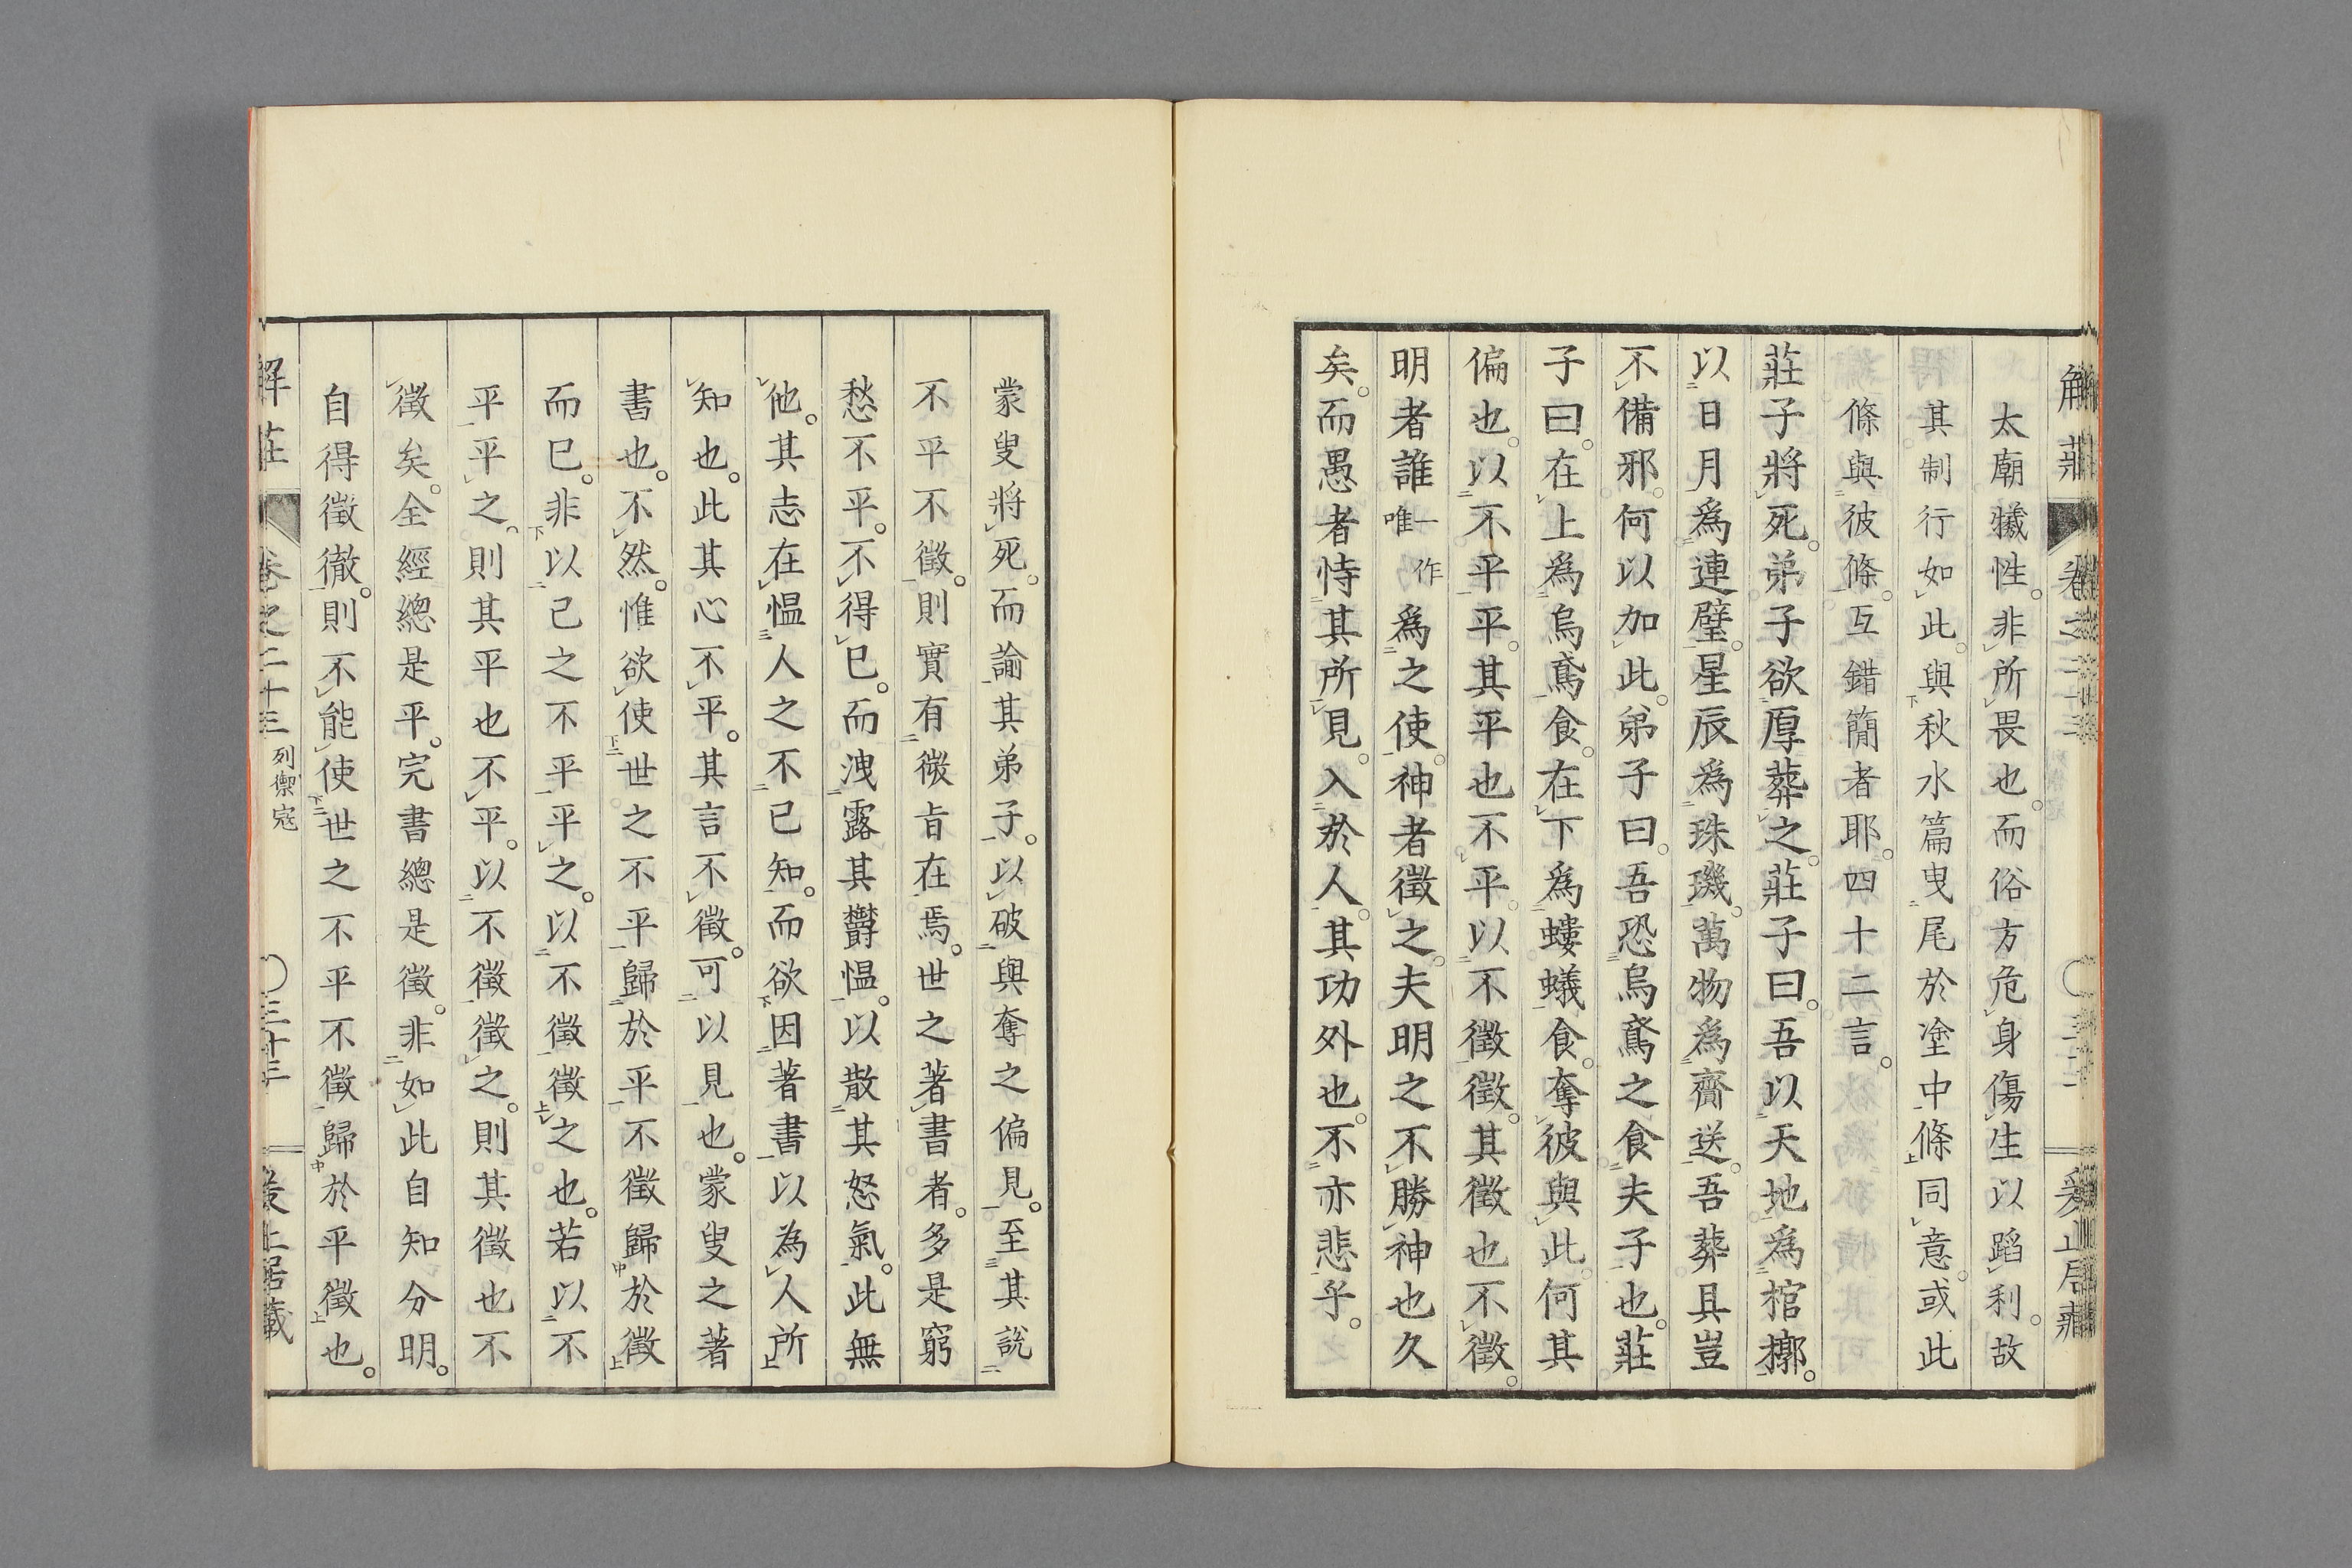 太廟犧牲。非所畏也。而俗方危身傷生以蹈利。故
其制行如此。與秋水篇曳尾於塗中條同意。或此
條與彼條。互錯簡者耶。四十二言。
莊子將死。弟子欲厚葬之。莊子曰。吾以天地爲棺槨。
以日月爲連璧。星辰爲珠璣。萬物爲齎送。吾葬具豈
不備邪。何以加此。弟子曰。吾恐烏鳶之食夫子也。莊
子曰。在上爲烏鳶食。在下爲螻蟻食。奪彼與此。何其
偏也。以不平平。其平也不平。以不徵徵。其徵也不徵。
明者誰一作唯爲之使。神者徵之。夫明之不勝神也久
矣。而愚者恃其所見。入於人。其功外也。不亦悲乎。
解莊 卷之二十三 列禦寇 〇三十三
蒙叟將死。而諭其弟子。以破與奪之偏見。至其說
不平不徵。則實有微旨在焉。世之著書者。多是窮
愁不平。不得已。而洩露其欝慍。以散其怒氣。此無
他。其志在慍人之不已知。而欲因著書以為人所
知也。此其心不平。其言不徵。可以見也。蒙叟之著
書也。不然。惟欲使世之不平歸於平不徵歸於徵
而已。非以己之不平平之。以不徵徵之也。若以不
平平之。則其平也不平。以不徵徵之。則其徵也不
徵矣。全經總是平。完書總是徵。非如此自知分明。
自得徵徹。則不能使世之不平不徵歸於平徵也。